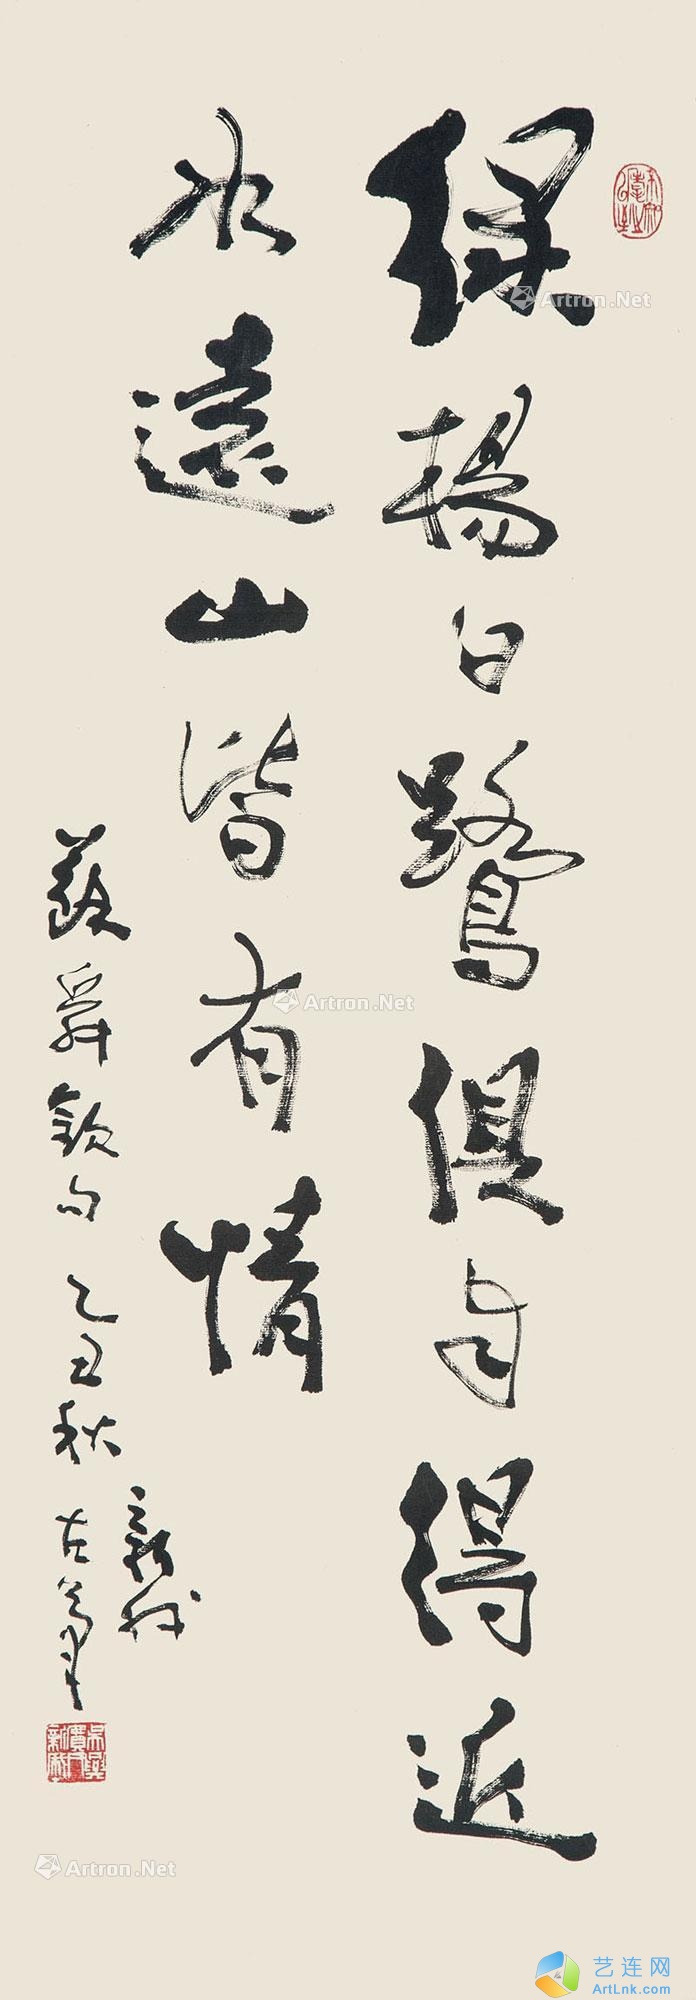 綠楊白鷺俱自得近
水遠山皆有情
蘇舜欽句 乙丑秋
費新我左筆
Artron.Net
Artron.Net
Artron.Net
艺连网
ArtLnk.com